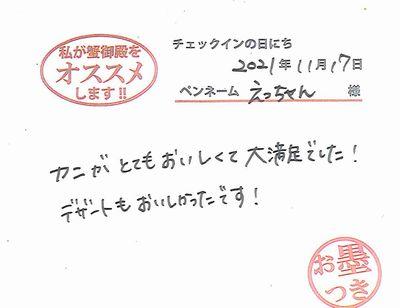 私が蟹御殿を
オススメ
します!!
チェックインの日にち
2021年11月17日
ペンネーム えっちゃん 様
カニがとてもおいしくて大満足でした!
デザートもおいしかったです!
お墨
つき